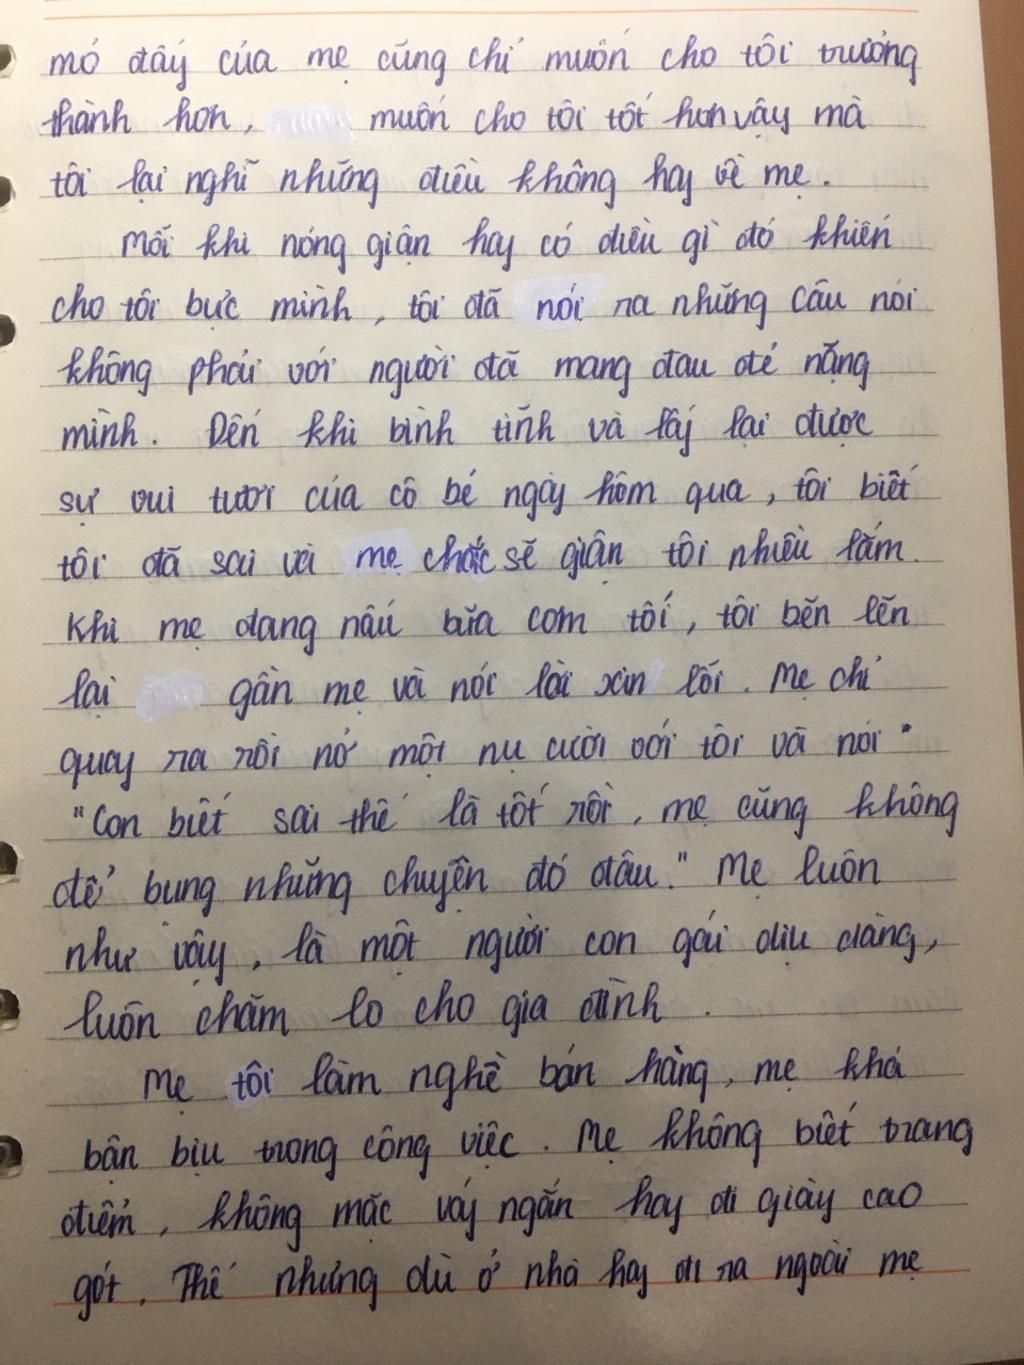 mó đấy của mẹ cũng chỉ muốn cho tôi trưởng
thành hơn, muốn cho tôi tốt hơn vậy mà
tôi lại nghĩ những điều không hay về mẹ.
Mỗi khi nóng giận hay có điều gì đó khiến
cho tôi bực mình, tôi đã nói ra những câu nói
không phải với người đã mang đau đẻ nặng
mình. Đến khi bình tĩnh và lấy lại được
sự vui tươi của cô bé ngày hôm qua, tôi biết
tôi đã sai và mẹ chắc sẽ giận tôi nhiều lắm.
Khi mẹ đang nấu bữa cơm tối, tôi bẽn lẽn
lại gần mẹ và nói lời xin lỗi. Mẹ chỉ
quay ra rồi nở một nụ cười với tôi và nói
"Con biết sai thế là tốt rồi, mẹ cũng không
để bụng những chuyện đó đâu." Mẹ luôn
như vậy, là một người con gái dịu dàng,
luôn chăm lo cho gia đình.
Mẹ tôi làm nghề bán hàng, mẹ khá
bận bịu trong công việc. Mẹ không biết trang
điểm, không mặc váy ngắn hay đi giày cao
gót. Thế nhưng dù ở nhà hay đi ra ngoài mẹ